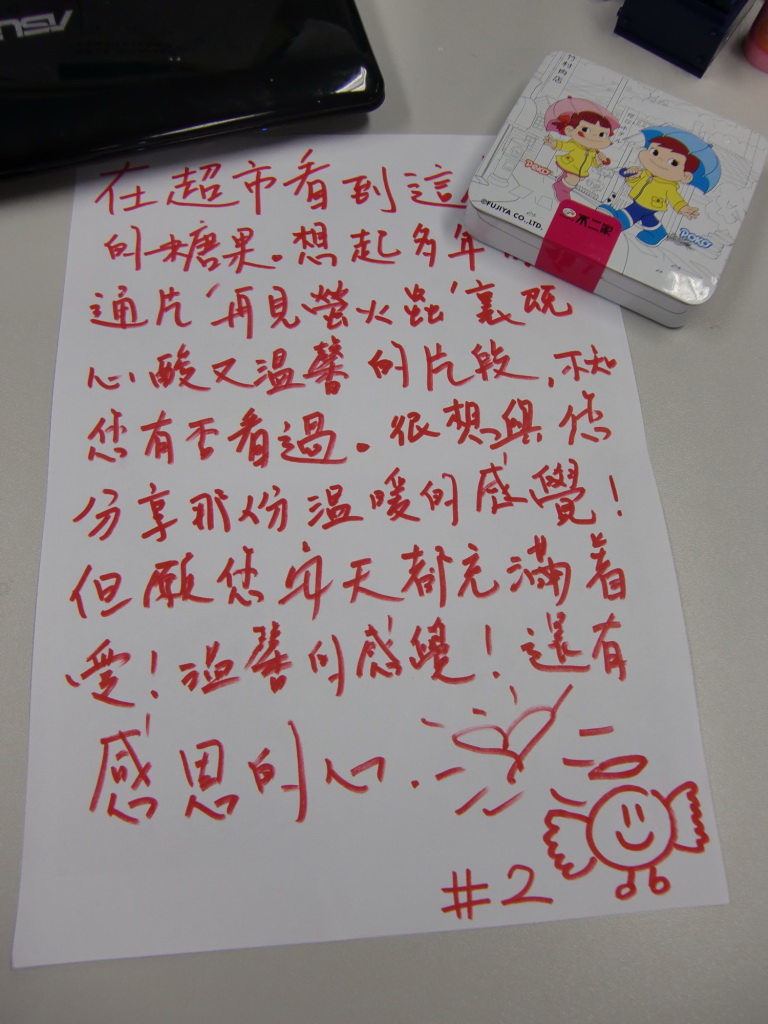 ASUS
竹村商店
POKO
©FUJIYA CO.,LTD.
不二家
POKO
在超市看到這
的糖果。想起多年
通片"再見螢火蟲"裏既
心酸又溫馨的片段,不知
您有否看過。很想與您
分享那份溫暖的感覺!
但願您每天都充滿着
愛!溫馨的感覺!還有
感恩的心.
#2